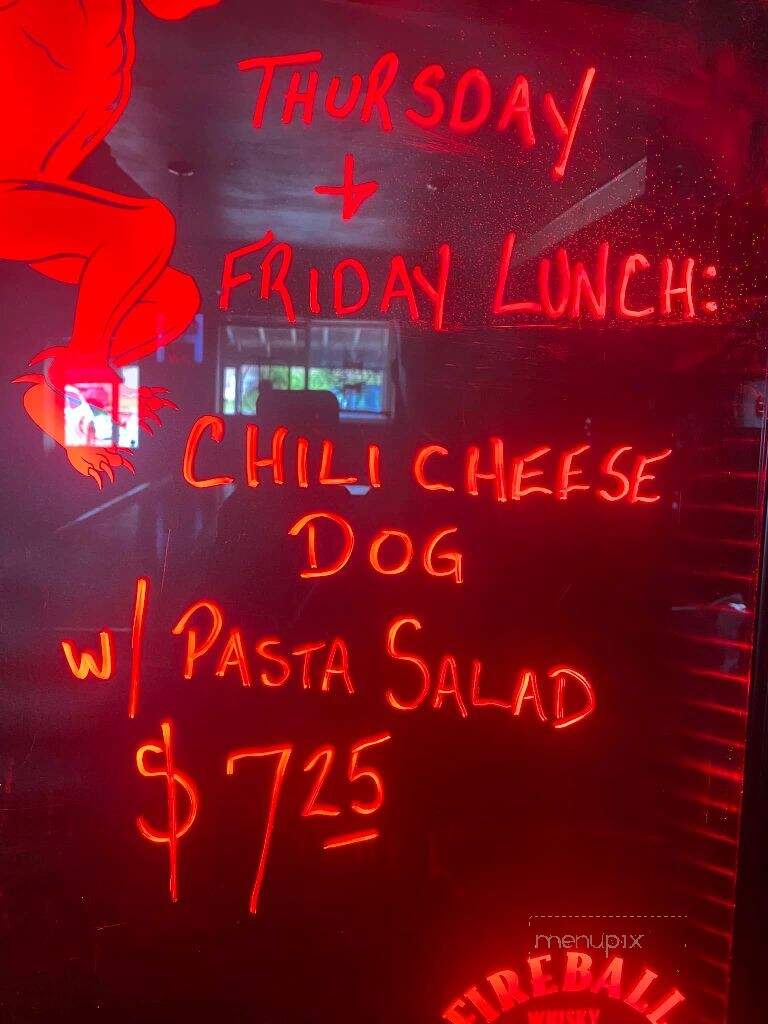 THURSDAY
+
FRIDAY LUNCH:
CHILI CHEESE
DOG
w/ PASTA SALAD
$7 25
menupix
FIREBALL
WHISKY